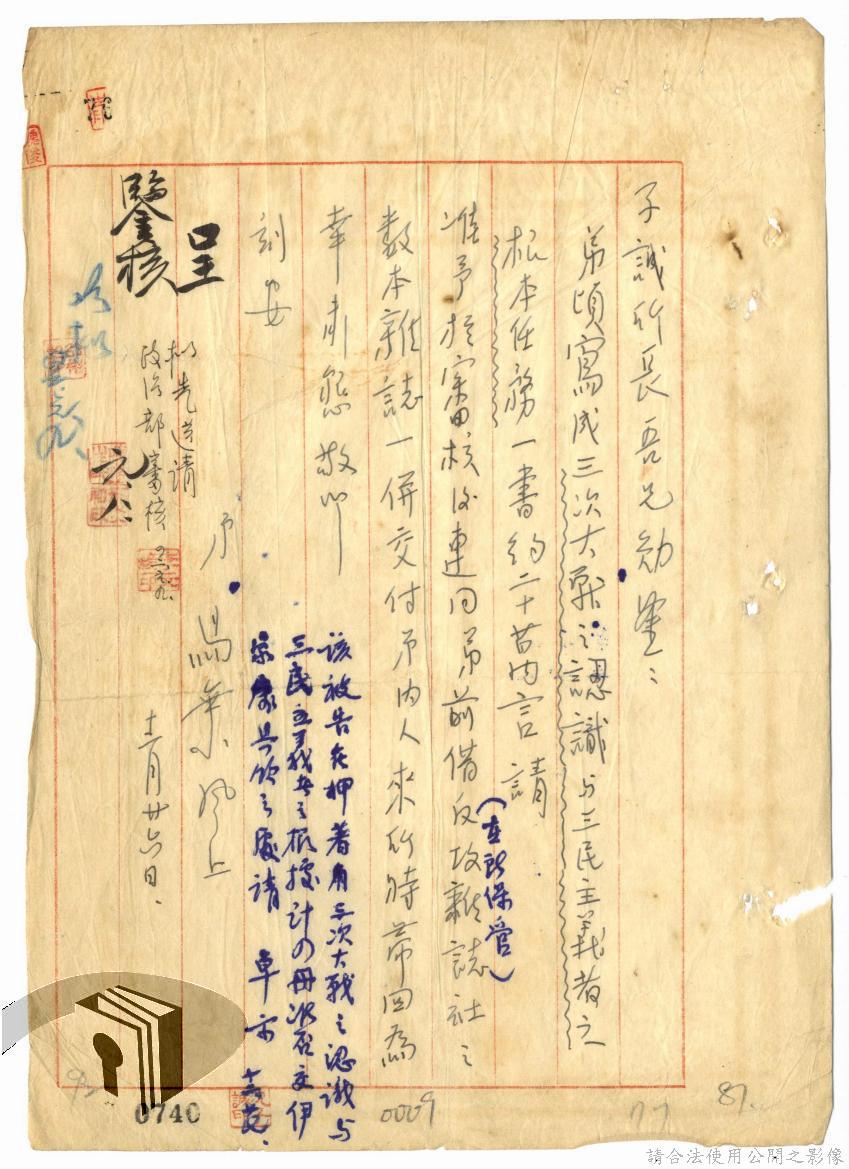 子誠所長吾兄勛鑒：
弟頃寫成三次大戰之認識与三民主義者之
根本任務一書約二十萬言請
准予於審核後連同弟前借反攻雜誌社之
（在所保管）
數本雜誌一併交付弟內人來所時帶回為
幸肅懇敬叩
刻安
弟 馮葉風上
十二月廿六日、
該被告在押著有三次大戰之認識与
三民主義者之根據計四冊
請
卓示
呈
鑒核
先送請
政治部審核
0740
0009
77
87.
請合法使用公開之影像